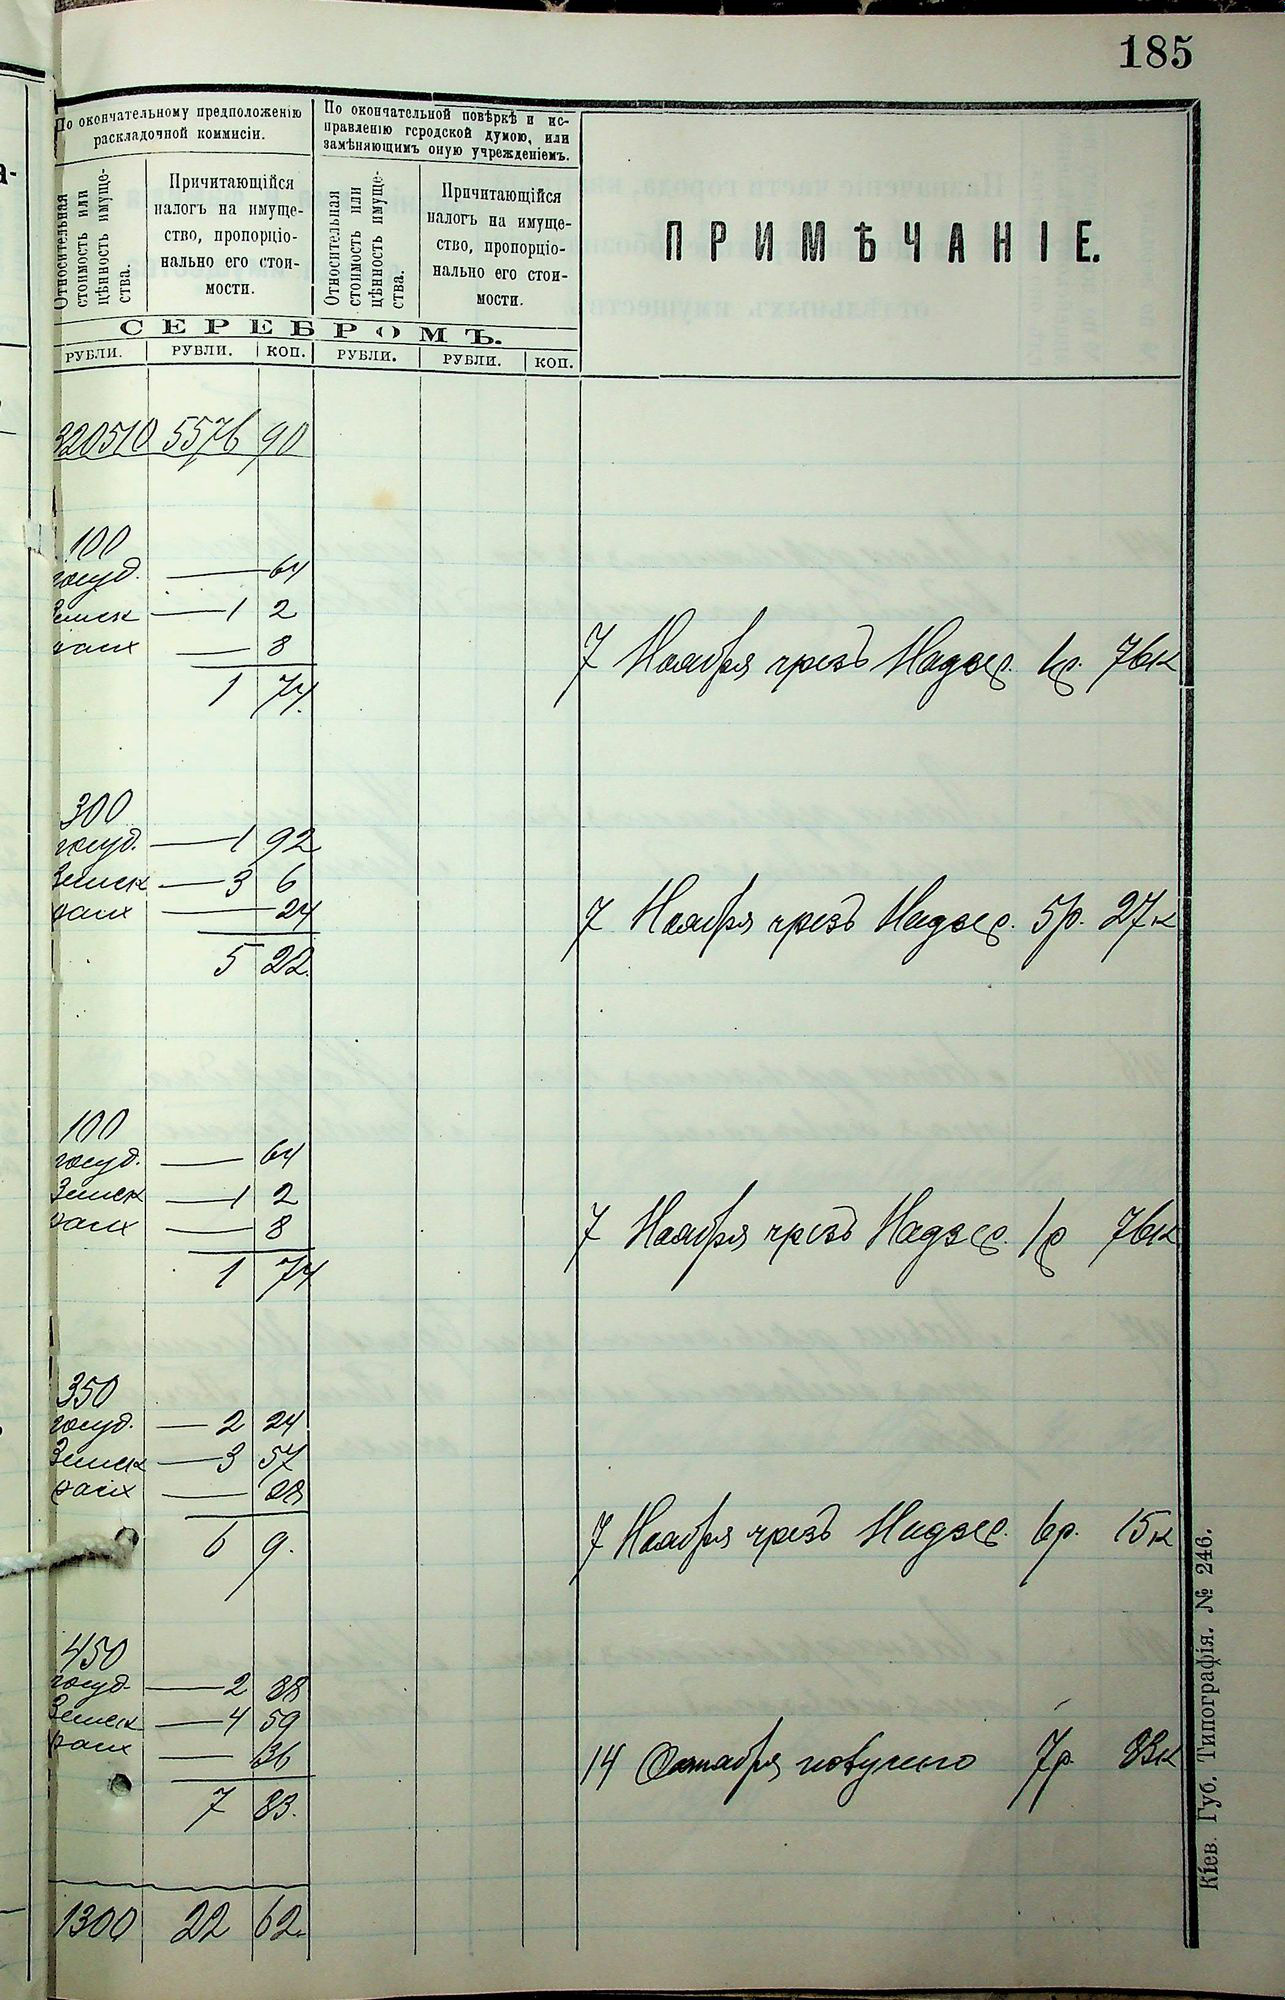 185
По окончательному предположенію
раскладочной коммисіи.
По окончательной повѣркѣ и ис-
правленію городской думою, или
замѣняющимъ оную учрежденіемъ.
ПРИМѢЧАНІЕ.
Относительная
стоимость или
цѣнность имуще-
ства.
Причитающійся
налогъ на имуще-
ство, пропорціо-
нально его стои-
мости.
Относительная
стоимость или
цѣнность имуще-
ства.
Причитающійся
налогъ на имуще-
ство, пропорціо-
нально его стои-
мости.
СЕРЕБРОМЪ.
РУБЛИ. РУБЛИ. КОП. РУБЛИ. РУБЛИ. КОП.
320510 5576 90
100
госуд. — 64
Земск — 1 2
— 8
1 74.
7 Ноября чрезъ Надзер. 1р. 76к
300
госуд. — 1 92
Земск — 3 6
— 24
5 22.
7 Ноября чрезъ Надзер. 5р. 27к
100
госуд. — 64
Земск — 1 2
— 8
1 74
7 Ноября чрезъ Надзер. 1р 76к
350
госуд. — 2 24
Земск — 3 57
— 28
6 9.
7 Ноября чрезъ Надзер. 6р. 15к
450
госуд. — 2 88
Земск — 4 59
— 36
7 83.
14 Октября получено 7р. 83к
1300 22 62.
Кіев. Губ. Типографія. № 246.